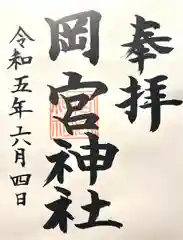 奉拝
岡宮神社
令和五年六月四日